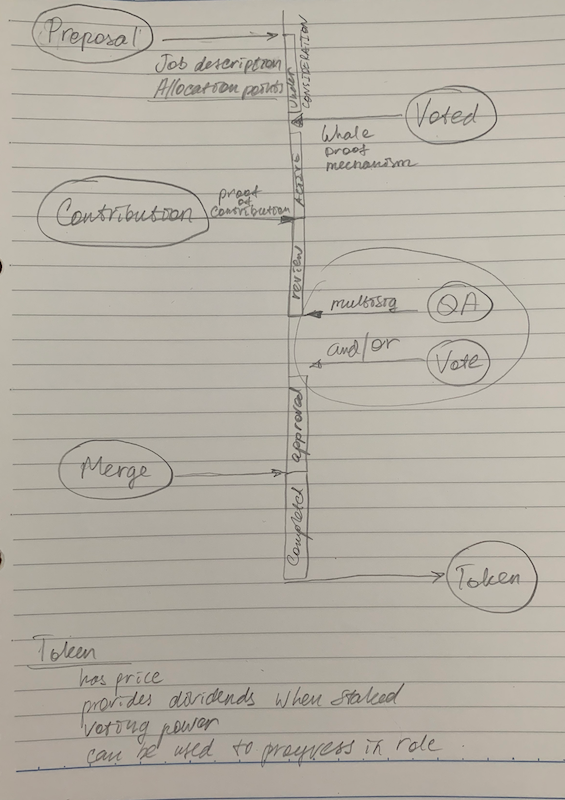 Preposal
Job description
Allocation points
Under
CONSIDERATION
Voted
Whale
proof
mechanism
Active
Contribution
proof
of
contribution
review
multisig
QA
and/or
Vote
approval
Merge
Completed
Token
Token
has price
provides dividends when staked
voting power
can be used to progress in role